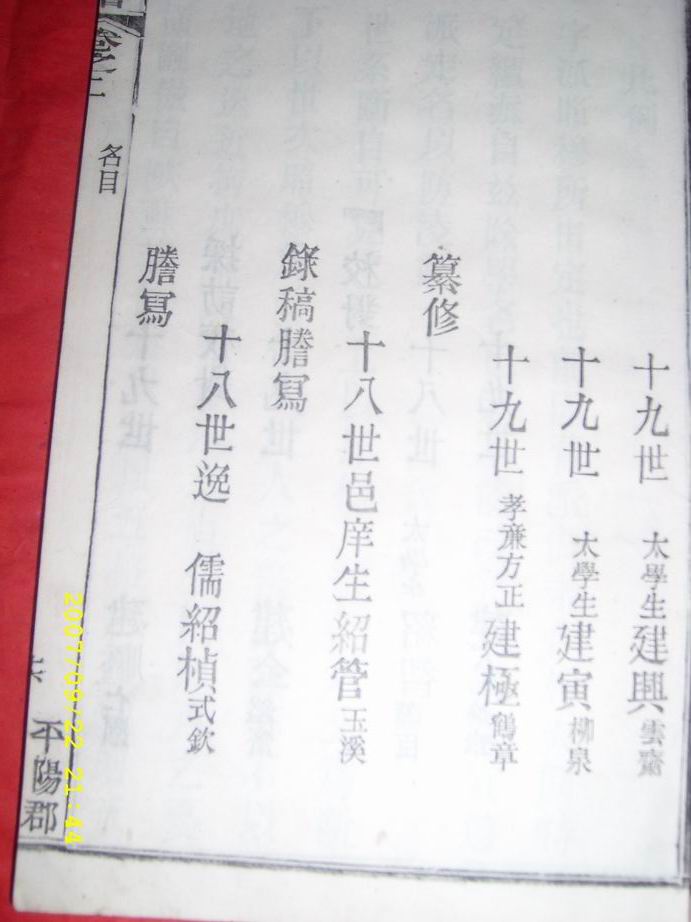 十九世 太學生建興雲齋
十九世 太學生建寅柳泉
十九世 孝廉方正建極鶴章
纂修
十八世邑庠生紹管玉溪
錄稿謄寫
十八世逸 儒紹楨式欽
謄寫
卷之二 名目
平陽郡
2007/09/22 21:44